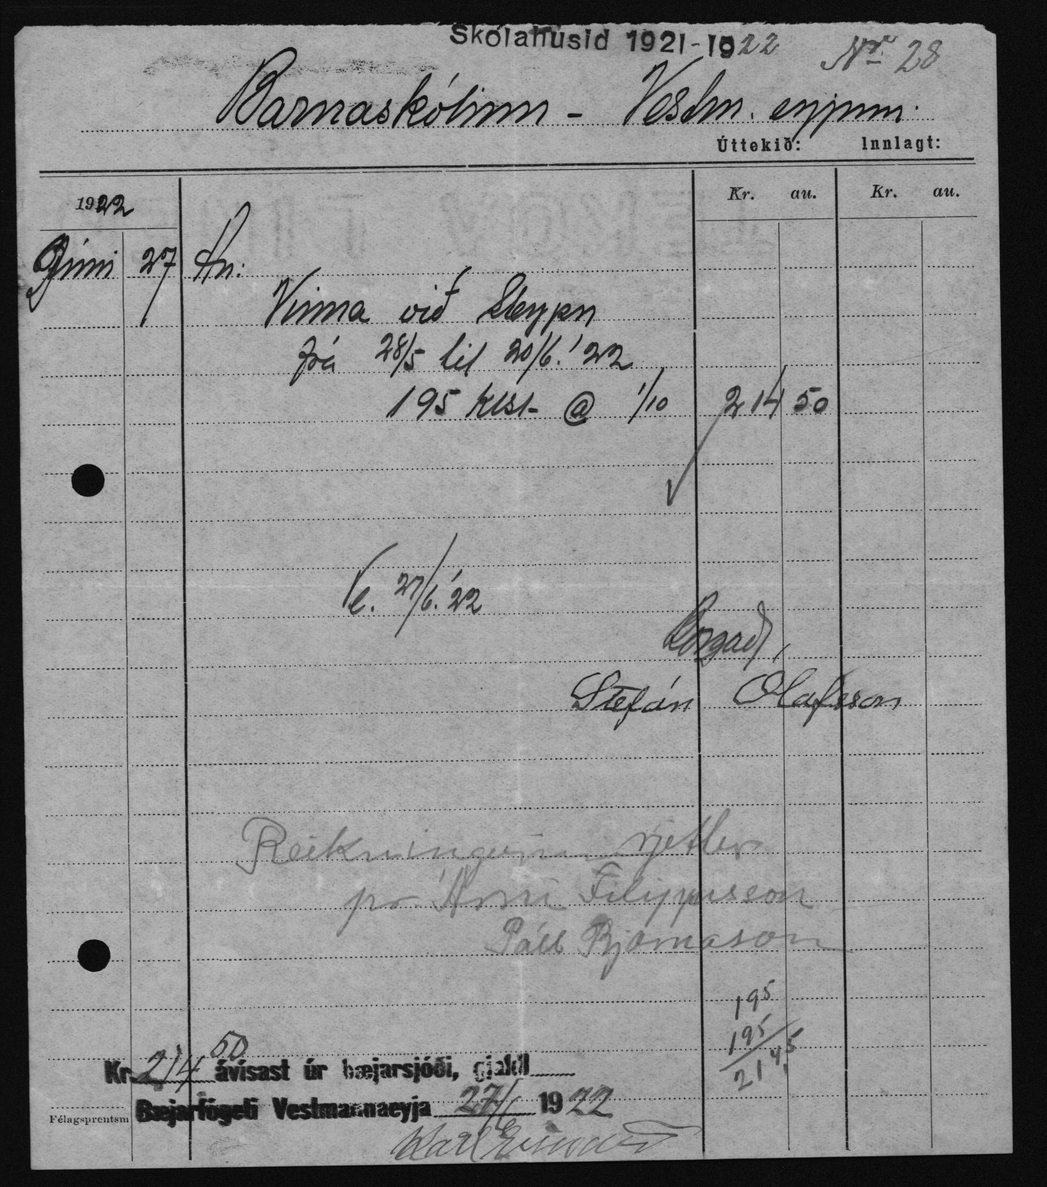 Skólahúsið 1921-1922 Nr. 28
Barnaskólinn - Vestm. eyjum.
Úttekið: Innlagt:
1922 Kr. au. Kr. au.
Júní 27 An:
Vinna við Steypu
frá 28/5 til 20/6.'22
195 klst- @ 1/10 214 50
Ve. 27/6.'22
Borgað,
Stefán Olafsson
Reikningurinn rjettur
pr. Árni Filippusson
Páll Bjarnason
195
195
214,5
Kr. 214 50 ávísast úr bæjarsjóði, gjaldl
Bæjarfógeti Vestmannaeyja 27/6 1922
Félagsprentsm
Karl Einarsson